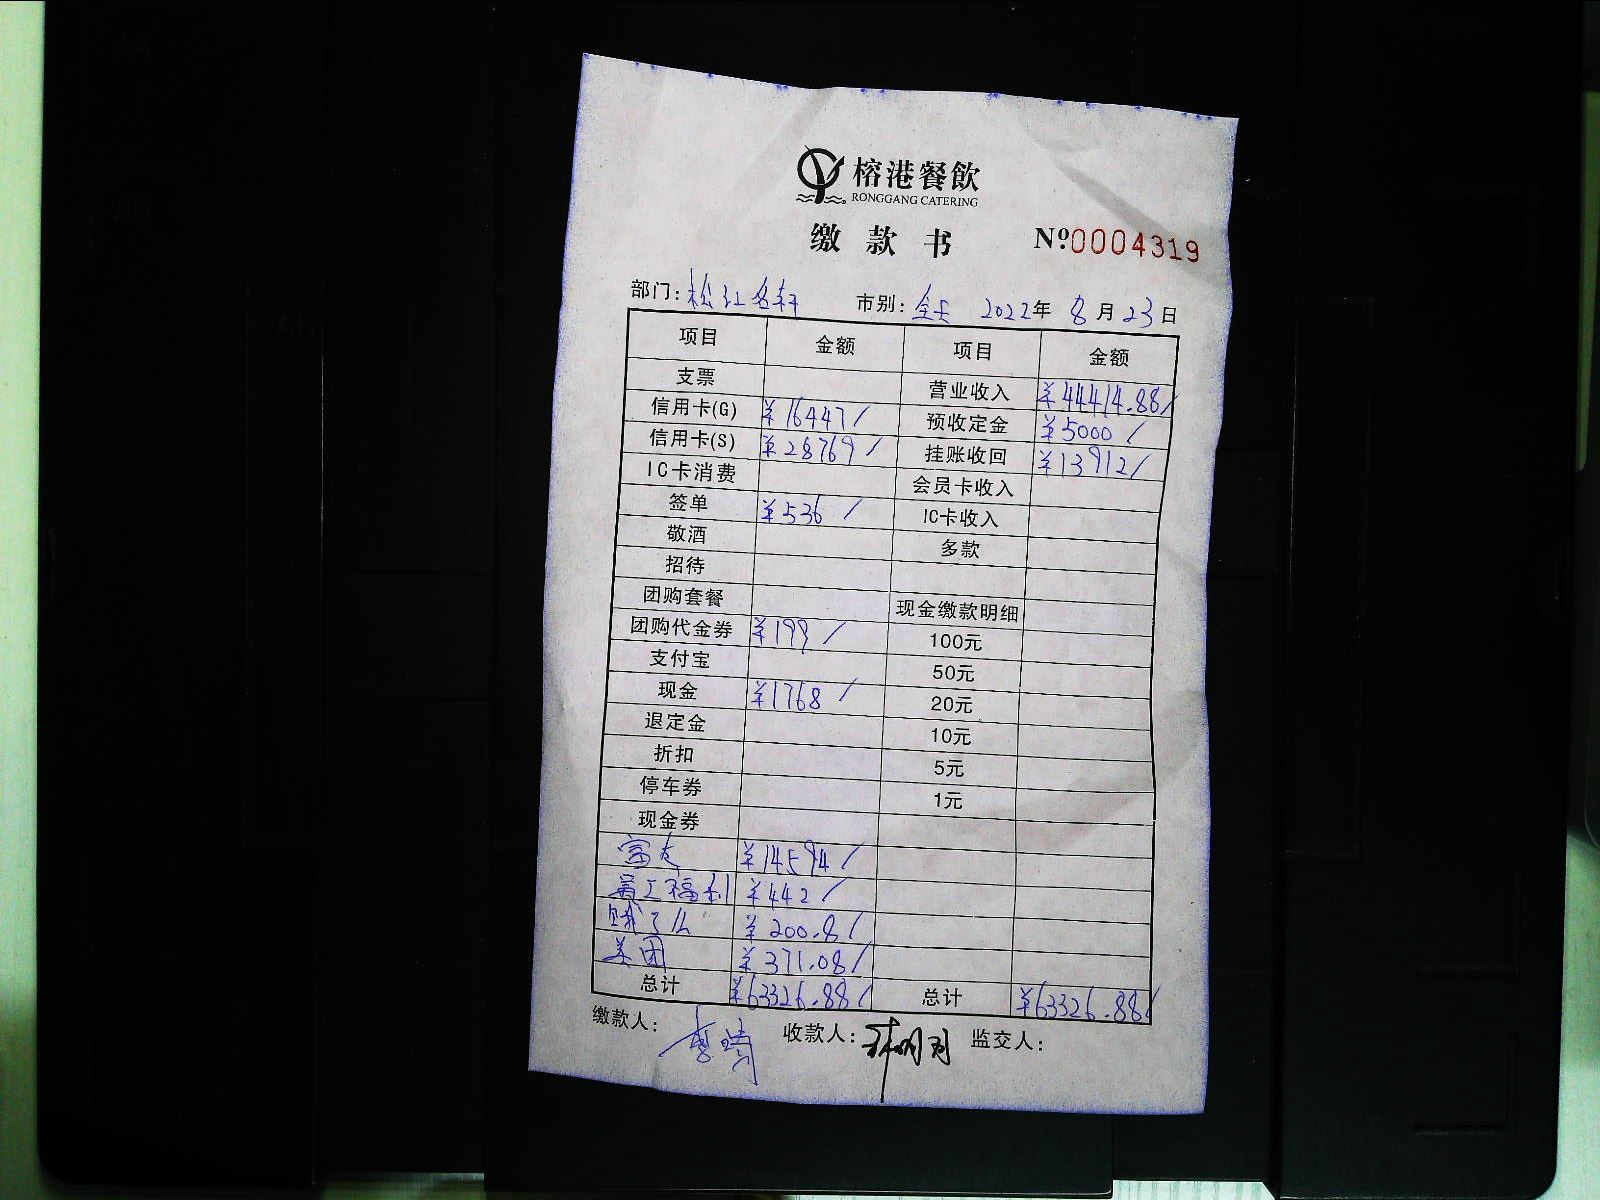 榕港餐飲
RONGGANG CATERING
缴款书 Nº0004319
部门: 松江名轩 市别: 全天 2022年 8月23日
项目 金额 项目 金额
支票 营业收入 ¥44414.88/
信用卡(G) ¥16447/ 预收定金 ¥5000/
信用卡(S) ¥28769/ 挂账收回 ¥13912/
IC卡消费 会员卡收入
签单 ¥536/ IC卡收入
敬酒 多款
招待
团购套餐 现金缴款明细
团购代金券 ¥199/ 100元
支付宝 50元
现金 ¥1768/ 20元
退定金 10元
折扣 5元
停车券 1元
现金券
¥14594/
员工福利 ¥442/
饿了么 ¥200.8/
美团 ¥371.08/
总计 ¥63326.88/ 总计 ¥63326.88/
缴款人: 收款人: 监交人: